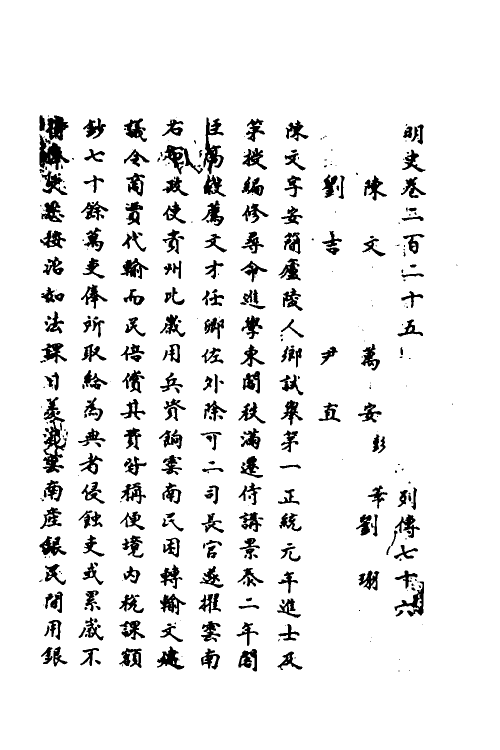 明史卷二百二十五　列傳七十六
陳文　萬安彭華　劉珝
劉吉　尹直
陳文字安簡廬陵人鄉試舉第一正統元年進士及
第授編修尋命進學東閣秩滿遷侍講景泰二年閣
臣高縠薦文才任卿佐外除可二司長官遂擢雲南
右布政使貴州比歲用兵資餉雲南民困轉輸文
議令商賈代輸而民倍償其費皆稱便境內稅課額
鈔七十餘萬吏俸所取給為典者侵蝕吏或累歲不
得俸文悉按治如法課日羨雲南產銀民間用銀